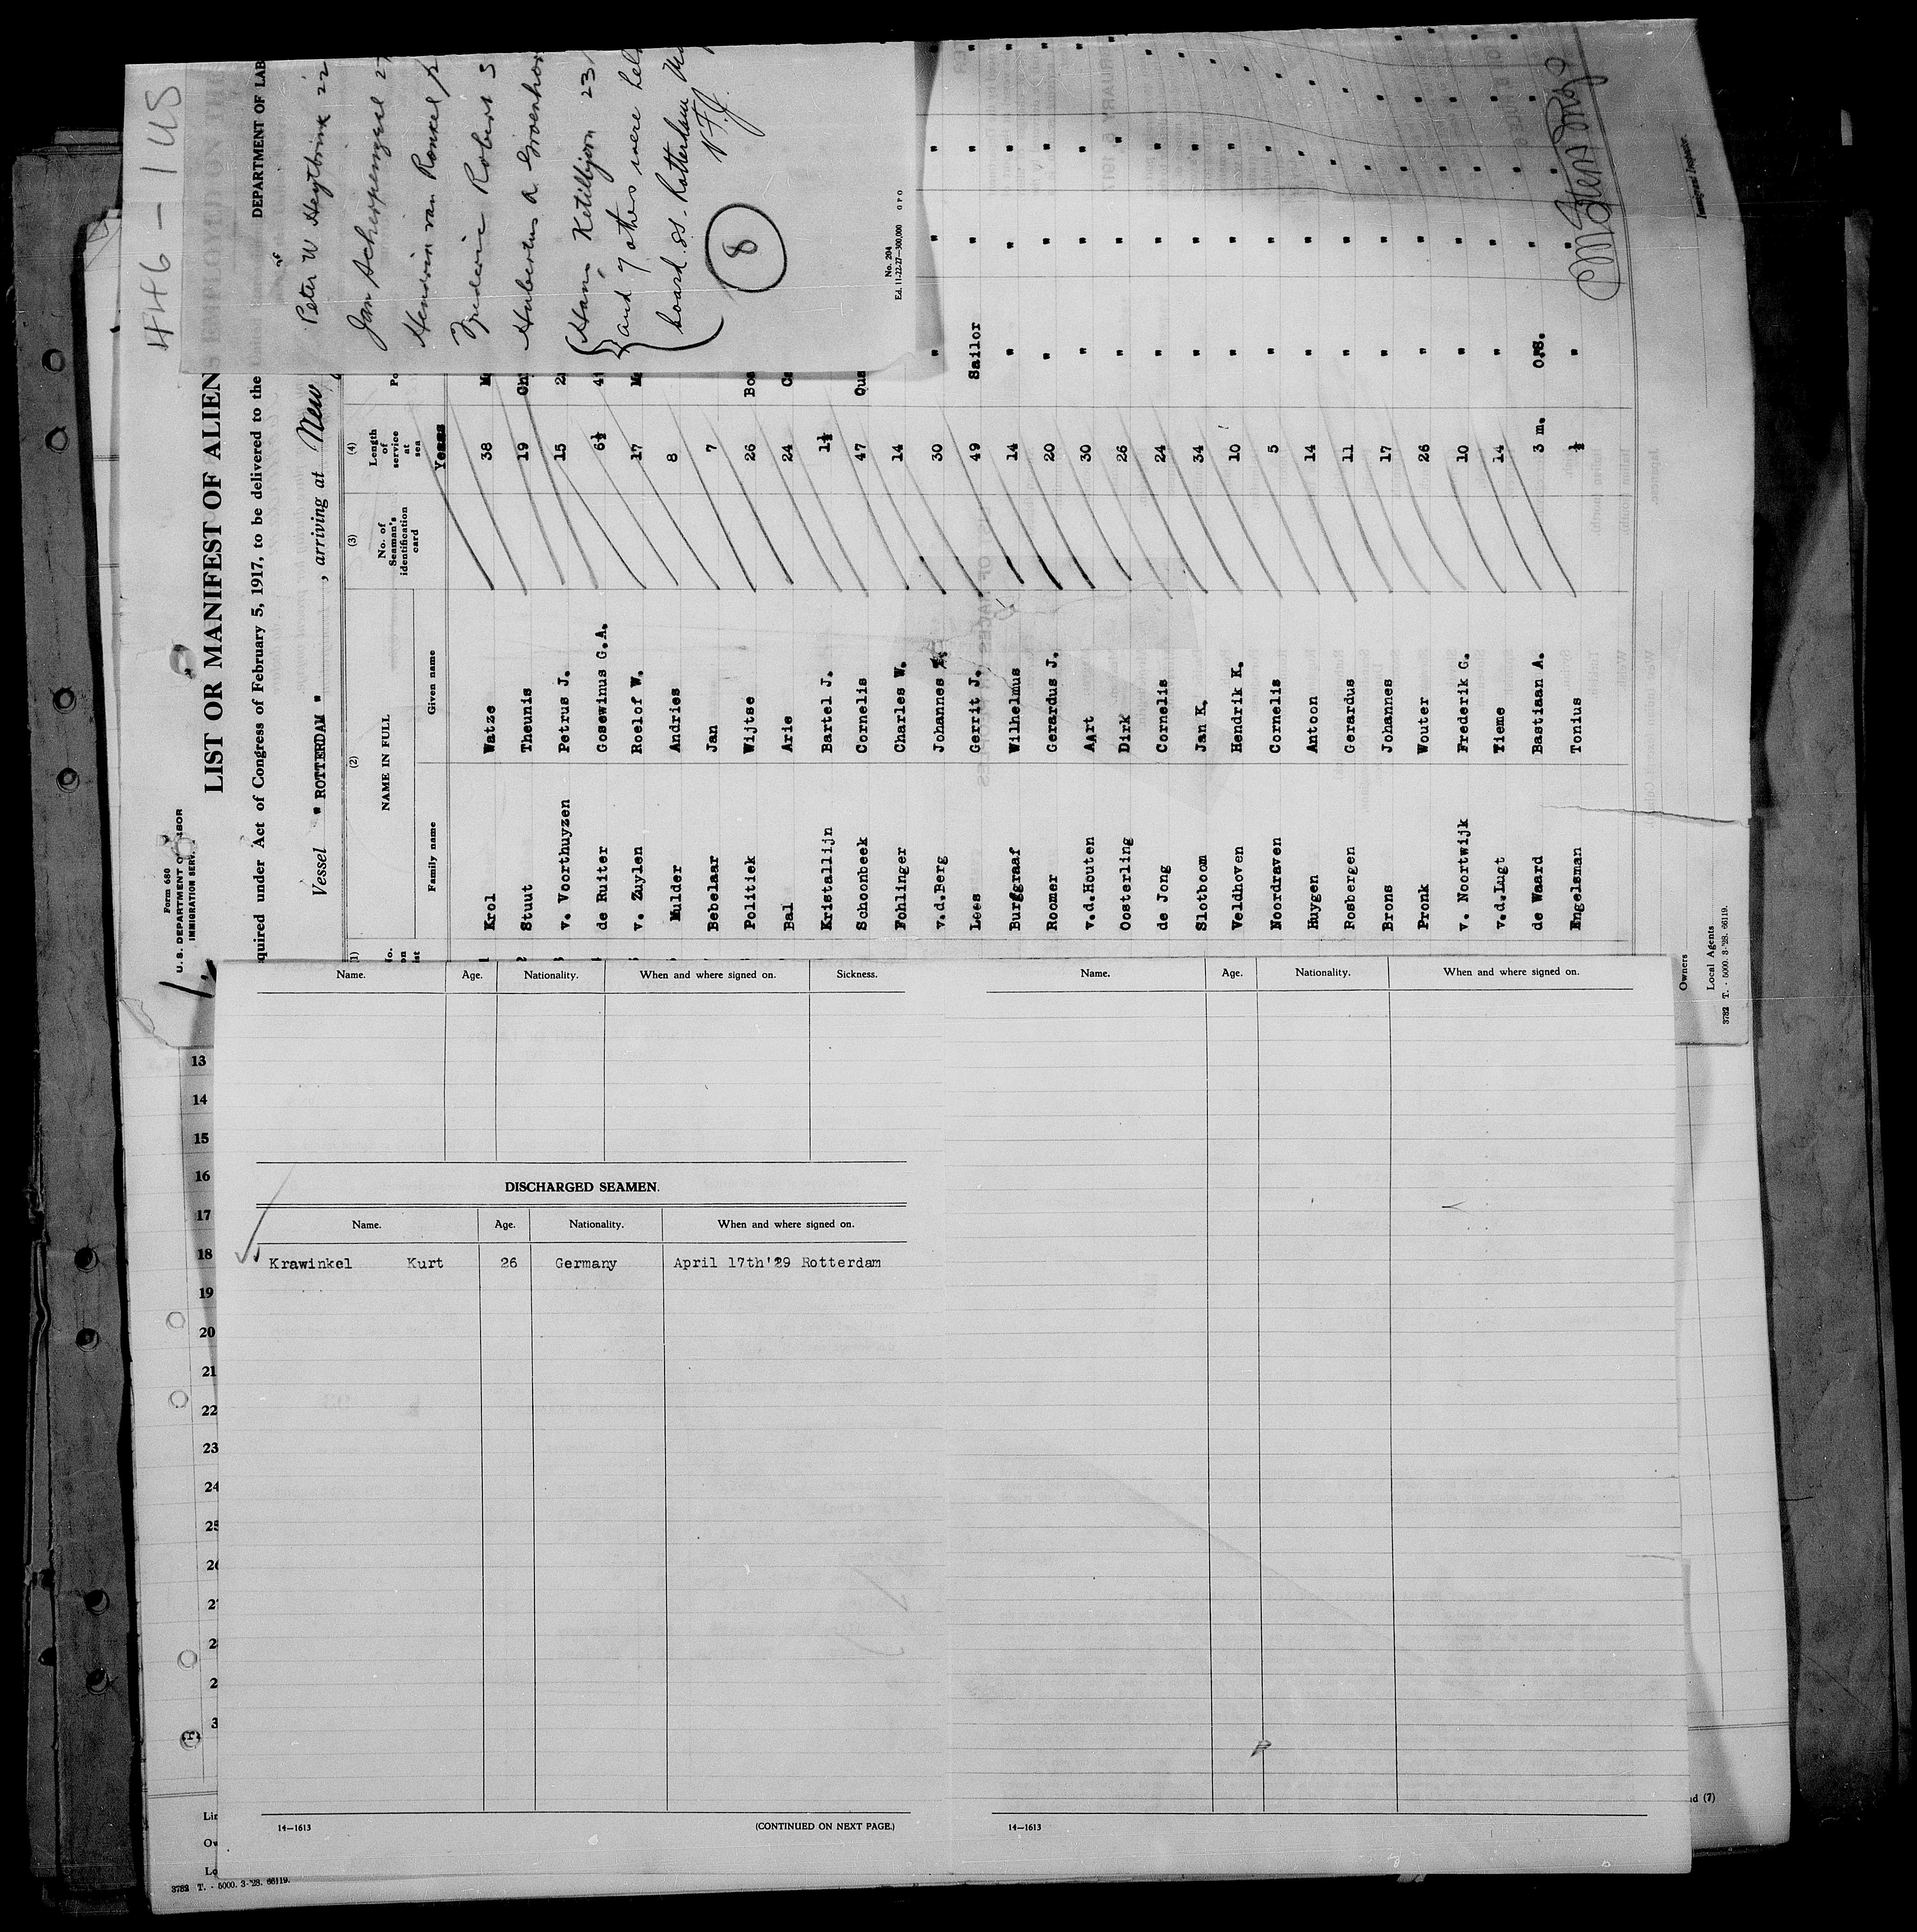 446 - 1 US
Form 680
U. S. DEPARTMENT OF LABOR
IMMIGRATION SERV
LIST OR MANIFEST OF ALIEN
quired under Act of Congress of February 5, 1917, to be delivered to the
Vessel "ROTTERDAM", arriving at New
(2) (3) (4)
NAME IN FULL
Family name Given name
No. of Seaman's identification card
Length of service at sea
Years
Krol Watze 38
Stuut Theunis 19
v. Voorthuyzen Petrus J. 15
de Ruiter Gosewinus G.A. 6½
v. Zuylen Roelof W. 17
Mulder Andries 8
Bebelaar Jan 7
Politiek Wijtse 26 Bo
Bal Arie 24
Kristallijn Bartel J. 1½
Schoonbeek Cornelis 47 Qua
Fohlinger Charles W. 14
v.d.Berg Johannes 30 "
Lees Gerrit J. 49 Sailor
Burggraaf Wilhelmus 14 "
Roomer Gerardus J. 20 "
v.d.Houten AArt 30 "
Oosterling Dirk 26 "
de Jong Cornelis 24 "
Slotboom Jan K. 34 "
Veldhoven Hendrik K. 10 "
Noordraven Cornelis 5 "
Huygen Antoon 14 "
Rosbergen Gerardus 11 "
Brons Johannes 17 "
Pronk Wouter 26 "
v. Noortwijk Frederik G. 10 "
v.d.Lugt Tieme 14 "
de Waard Bastiaan A. 3 m. O.S.
Engelsman Tonius ½ "
Immigrant Inspector
Owners
Local Agents
3782 T. - 5000. 3-'28. 66119.
DEPARTMENT OF LAB
Peter W Heytbrink 22
Jan Scherpenzeel 27
Hendrik van Ronkel
Frederic Robers
Hubertus A Groenhor
Hans Ketilbjorn 23
and 7 others were hel
board ss. Rotterdam
8
No. 204
Ed. 11-22-27—300,000 GPO
Name. Age. Nationality. When and where signed on. Sickness.
DISCHARGED SEAMEN.
Name. Age. Nationality. When and where signed on.
Krawinkel Kurt 26 Germany April 17th'29 Rotterdam
14—1613 (CONTINUED ON NEXT PAGE.)
Name. Age. Nationality. When and where signed on.
14—1613
13
14
15
16
17
18
19
20
21
22
23
24
25
Lin
Ow
Lo
3782 T. - 5000. 3-'28. 66119.
d (7)